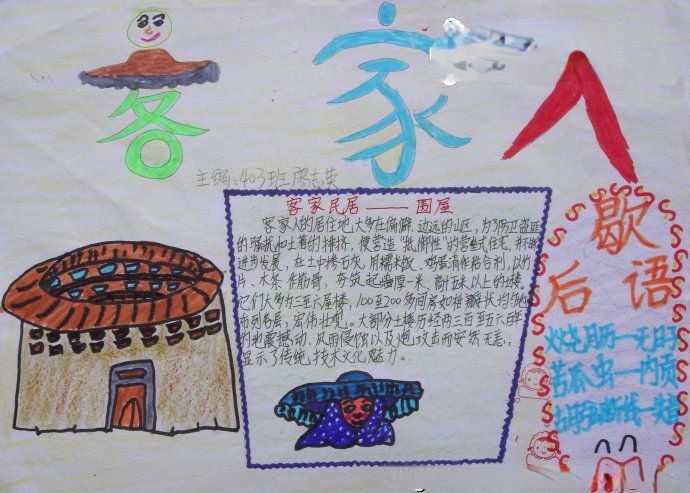 客家人
主编:403班廖志荣
客家民居——围屋
客家人的居住地大多在偏僻、边远的山区,为了防卫盗匪
的骚扰和土著的排挤,便营造"抵御性"的营垒式住宅,并不断
进步发展,在土中掺石灰,用糯米饭、鸡蛋清作粘合剂,以竹
片、木条作筋骨,夯筑起墙厚一米、高15米以上的土楼。
它们大多为三至六层楼,100至200多间房如桔瓣状均匀地
而列各层,宏伟壮观。大部分土楼历经两三百至五六百年
的地震撼动、风雨侵蚀以及炮攻击而安然无恙,
显示了传统技术文化魅力。
歇
后语
一无用
苦瓜虫一内
断线一